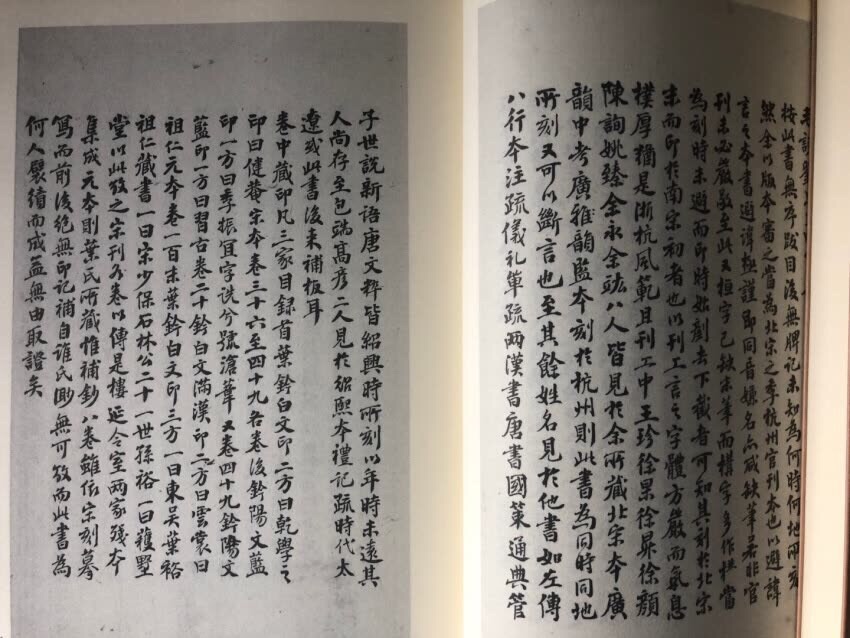 按此書無序跋目後無牌記未知為何時何地所刻
然余以版本審之當為北宋之季杭州官刊本也以避諱
言之本書避諱極謹即同音嫌名亦咸缺筆若非官
刊未必嚴敬至此又桓字已缺末筆而構字多作栱當
為刻時未避而印時始剷去下截者可知其刻於北宋
末而印於南宋初者也以刊工言之字體方嚴而氣息
樸厚猶是浙杭風範且刊工中王珍徐杲徐昇徐顏
陳詢姚臻余永余竑八人皆見於余所藏北宋本廣
韻中考廣雅韻監本刻於杭州則此書為同時同地
所刻又可以斷言也至其餘姓名見於他書如左傳
八行本注疏儀礼單疏兩漢書唐書國策通典管
子世説新語唐文粹皆紹興時所刻以年時未遠其
人尚存至包端高彥二人見於紹熙本禮記疏時代太
遼或此書後來補板耳
卷中藏印凡三家目錄首葉鈐白文印二方曰乾學之
印曰健菴宋本卷三十六至四十九各卷後鈐陽文藍
印一方曰季振宜字詵兮號滄葦又卷四十九鈐陽文
藍印一方曰習古卷二十鈐白文滿漢印二方曰雲裳曰
祖仁元本卷一百末葉鈐白文印三方一曰東吳葉裕
祖仁藏書一曰宋少保石林公二十一世孫裕一曰樸墅
堂以此攷之宋刊各卷以傳是樓延令室兩家殘本
集成元本則葉氏所藏惟補鈔八卷雖依宋刻摹
寫而前後絶無印記補自誰氏則無可攷而此書為
何人襞績而成蓋無由取證矣